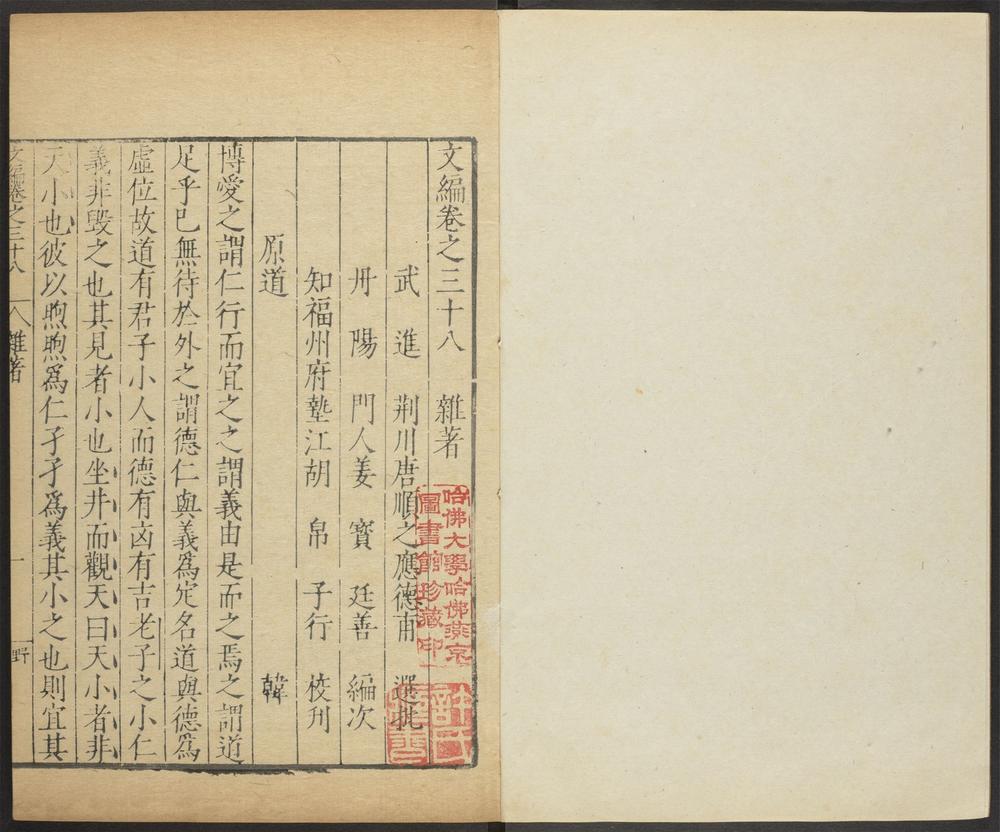 文編卷之三十八　雜著
武進　荆川唐順之應德甫　選批
丹陽　門人姜寳廷善　編次
知福州府墊江胡帛子行　校刊
原道　韓
博愛之謂仁行而宜之之謂義由是而之焉之謂道
足乎已無待於外之謂德仁與義爲定名道與德爲
虛位故道有君子小人而德有凶有吉老子之小仁
義非毀之也其見者小也坐井而觀天曰天小者非
天小也彼以煦煦爲仁孑孑爲義其小之也則宜其
文編卷之三十八　雜著　一　野
哈佛大學哈佛燕京
圖書館珍藏印